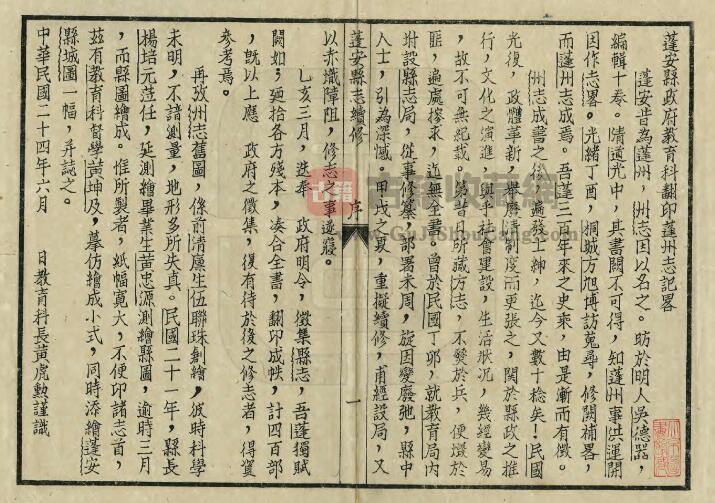 蓬安縣政府教育科翻印蓬州志記畧
蓬安昔為蓬州,州志因以名之。昉於明人吳德器,
編輯十卷。清道光中,其書闕不可得,知蓬州事洪運開
因作志畧。光緒丁酉,桐城方旭博訪蒐尋,修闕補畧,
而蓬州志成焉。吾蓬二百年來之史來,由是漸而有徵。
州志成書之後,遍發士紳,迄今又數十稔矣!民國
光復,政體革新,舉曆清制度而更張之,關於縣政之推
行,文化之演進,與乎社會建設,生活狀況,幾經變易
,故不可無紀載。
人士,引為深憾。甲戌之夏,重擬續修,甫經設局,又
匪,遍處搜求,迄無全書,曾於民國丁卯,就教育局內
附設縣志局,從事修纂,部署未周,旋因變廢弛,縣中
蓬安縣志續修
序
一
以赤熾障阻,修志之事遂寢。
乙亥三月,迭奉 政府明令,徵集縣志,吾蓬獨賦
闕如;廼拾各方殘本,湊合全書,翻印成帙,計四百部
,旣以上應 政府之徵集,復有待於後之修志者,得資
參考焉。
再攷州志舊圖,係前清廩生伍聯珠創繪,彼時科學
未明,不諳測量,地形多所失真。民國二十一年,縣長
楊培元蒞任,延測繪畢業生黃忠源測繪縣圖,逾時三月
,而縣圖繪成。惟所製者,紙幅寬大,不便印諸志首,
茲有教育科督學黃坤及,摹仿繪成小式,同時添繪蓬安
縣城圖一幅,并誌之。
中華民國二十四年六月 日教育科長黃虎勳謹識
古籍收藏網
www.GuJiShouCang.com